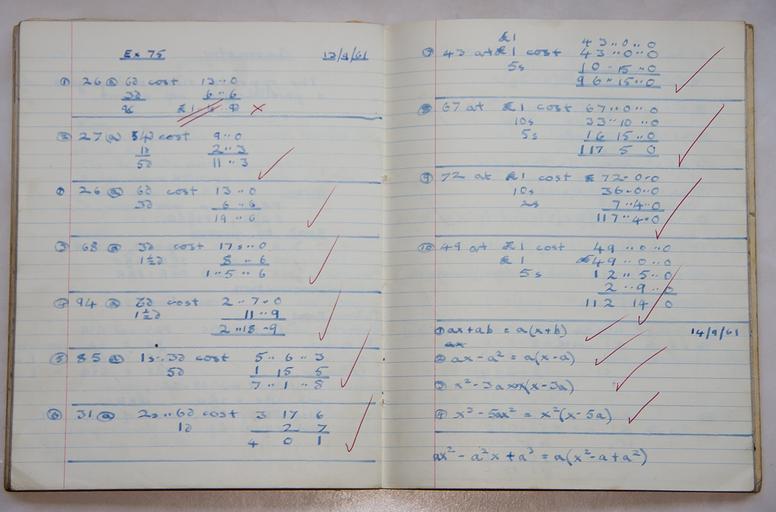 Ex 75 13/9/61
① 26 @ 6d cost 13 .. 0
3d 6 .. 6
② 27 @ 4d cost 9 .. 0
1d 2 .. 3
5d 11 .. 3
26 @ 6d cost 13 .. 0
3d 6 .. 6
19 .. 6
③ 68 @ 3d cost 17s .. 0
1½d 8 .. 6
1 .. 5 .. 6
④ 94 @ 6d cost 2 .. 7 .. 0
1½d 11 .. 9
2 .. 18 .. 9
⑤ 85 @ 1s .. 3d cost 5 .. 6 .. 3
5d 1 15 5
7 .. 1 .. 8
⑥ 31 @ 2s .. 6d cost 3 17 6
1d 2 7
4 0 1
£1 43 .. 0 .. 0
⑦ 43 at £1 cost 43 .. 0 .. 0
5s 10 .. 15 .. 0
96 .. 15 .. 0
⑧ 67 at £1 cost 67 .. 0 .. 0
10s 33 .. 10 .. 0
5s 16 15 .. 0
117 5 0
⑨ 72 at £1 cost £ 72 .. 0 .. 0
10s 36 .. 0 .. 0
2s 7 .. 4 .. 0
117 .. 4 .. 0
⑩ 49 at £1 cost 49 .. 0 .. 0
£1 49 .. 0 .. 0
5s 12 .. 5 .. 0
2 .. 9 .. 0
112 14 0
① ax + ab = a(x+b) 14/9/61
② ax - a² = a(x-a)
③ x² - 3ax = x(x-3a)
④ x³ - 5ax² = x²(x-5a)
ax² - a²x + a³ = a(x² - a + a²)